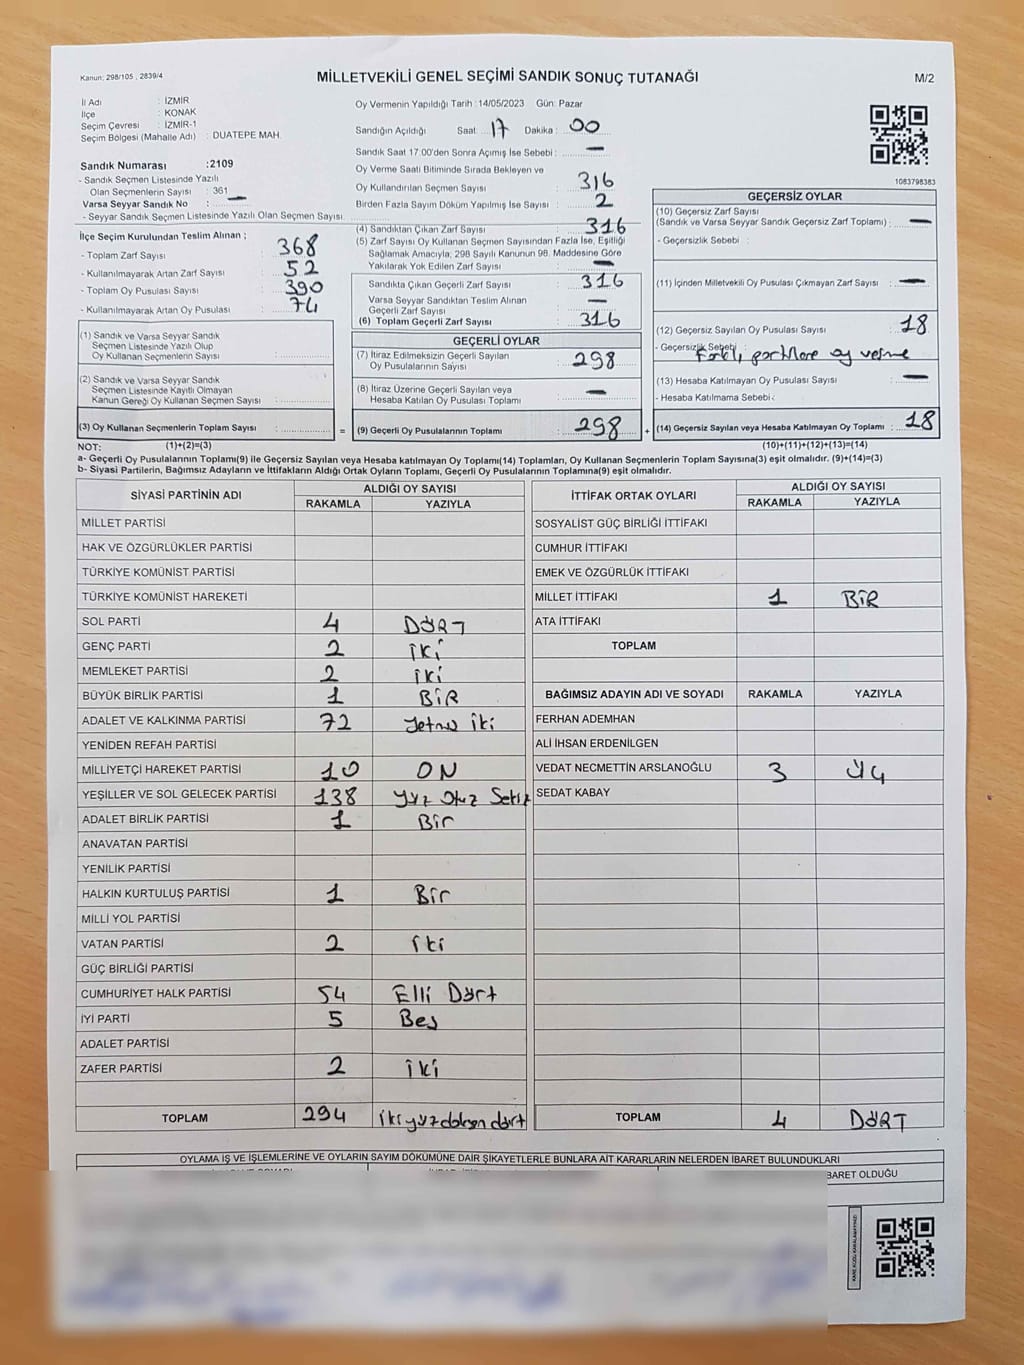 Kanun: 298/105 , 2839/4
MİLLETVEKİLİ GENEL SEÇİMİ SANDIK SONUÇ TUTANAĞI
M/2
İl Adı : İZMİR
İlçe : KONAK
Seçim Çevresi : İZMİR-1
Seçim Bölgesi (Mahalle Adı) : DUATEPE MAH.
Sandık Numarası :2109
- Sandık Seçmen Listesinde Yazılı
Olan Seçmenlerin Sayısı : 361
Varsa Seyyar Sandık No : —
- Seyyar Sandık Seçmen Listesinde Yazılı Olan Seçmen Sayısı:
Oy Vermenin Yapıldığı Tarih : 14/05/2023 Gün: Pazar
Sandığın Açıldığı Saat: 17 Dakika : 00
Sandık Saat 17:00'den Sonra Açımış İse Sebebi : —
Oy Verme Saati Bitiminde Sırada Bekleyen ve
Oy Kullandırılan Seçmen Sayısı : 316
Birden Fazla Sayım Döküm Yapılmış İse Sayısı : 2
1083798383
İlçe Seçim Kurulundan Teslim Alınan ;
- Toplam Zarf Sayısı : 368
- Kullanılmayarak Artan Zarf Sayısı : 52
- Toplam Oy Pusulası Sayısı : 390
- Kullanılmayarak Artan Oy Pusulası : 74
(1) Sandık ve Varsa Seyyar Sandık
Seçmen Listesinde Yazılı Olup
Oy Kullanan Seçmenlerin Sayısı :
(2) Sandık ve Varsa Seyyar Sandık
Seçmen Listesinde Kayıtlı Olmayan
Kanun Gereği Oy Kullanan Seçmen Sayısı :
(3) Oy Kullanan Seçmenlerin Toplam Sayısı :
(4) Sandıktan Çıkan Zarf Sayısı : 316
(5) Zarf Sayısı Oy Kullanan Seçmen Sayısından Fazla İse, Eşitliği
Sağlamak Amacıyla; 298 Sayılı Kanunun 98. Maddesine Göre
Yakılarak Yok Edilen Zarf Sayısı : —
Sandıkta Çıkan Geçerli Zarf Sayısı : 316
Varsa Seyyar Sandıktan Teslim Alınan
Geçerli Zarf Sayısı : —
(6) Toplam Geçerli Zarf Sayısı : 316
GEÇERLİ OYLAR
(7) İtiraz Edilmeksizin Geçerli Sayılan
Oy Pusulalarının Sayısı : 298
(8) İtiraz Üzerine Geçerli Sayılan veya
Hesaba Katılan Oy Pusulası Toplamı : —
= (9) Geçerli Oy Pusulalarının Toplamı : 298 +
GEÇERSİZ OYLAR
(10) Geçersiz Zarf Sayısı
(Sandık ve Varsa Seyyar Sandık Geçersiz Zarf Toplamı) : —
- Geçersizlik Sebebi :
(11) İçinden Milletvekili Oy Pusulası Çıkmayan Zarf Sayısı : —
(12) Geçersiz Sayılan Oy Pusulası Sayısı : 18
- Geçersizlik Sebebi : Farklı partilere oy verme
(13) Hesaba Katılmayan Oy Pusulası Sayısı : —
- Hesaba Katılmama Sebebi :
(14) Geçersiz Sayılan veya Hesaba Katılmayan Oy Toplamı : 18
NOT: (1)+(2)=(3) (10)+(11)+(12)+(13)=(14)
a- Geçerli Oy Pusulalarının Toplamı(9) ile Geçersiz Sayılan veya Hesaba katılmayan Oy Toplamı(14) Toplamları, Oy Kullanan Seçmenlerin Toplam Sayısına(3) eşit olmalıdır. (9)+(14)=(3)
b- Siyasi Partilerin, Bağımsız Adayların ve İttifakların Aldığı Ortak Oyların Toplamı, Geçerli Oy Pusulalarının Toplamına(9) eşit olmalıdır.
SİYASİ PARTİNİN ADI ALDIĞI OY SAYISI
RAKAMLA YAZIYLA
MİLLET PARTİSİ
HAK VE ÖZGÜRLÜKLER PARTİSİ
TÜRKİYE KOMÜNİST PARTİSİ
TÜRKİYE KOMÜNİST HAREKETİ
SOL PARTİ 4 DÖRT
GENÇ PARTİ 2 iki
MEMLEKET PARTİSİ 2 iki
BÜYÜK BİRLİK PARTİSİ 1 BİR
ADALET VE KALKINMA PARTİSİ 72 Yetmiş iki
YENİDEN REFAH PARTİSİ
MİLLİYETÇİ HAREKET PARTİSİ 10 ON
YEŞİLLER VE SOL GELECEK PARTİSİ 138 Yüz Otuz Sekiz
ADALET BİRLİK PARTİSİ 1 Bir
ANAVATAN PARTİSİ
YENİLİK PARTİSİ
HALKIN KURTULUŞ PARTİSİ 1 Bir
MİLLİ YOL PARTİSİ
VATAN PARTİSİ 2 iki
GÜÇ BİRLİĞİ PARTİSİ
CUMHURİYET HALK PARTİSİ 54 Elli Dört
İYİ PARTİ 5 Beş
ADALET PARTİSİ
ZAFER PARTİSİ 2 iki
TOPLAM 294 ikiyüzdoksan dört
İTTİFAK ORTAK OYLARI ALDIĞI OY SAYISI
RAKAMLA YAZIYLA
SOSYALİST GÜÇ BİRLİĞİ İTTİFAKI
CUMHUR İTTİFAKI
EMEK VE ÖZGÜRLÜK İTTİFAKI
MİLLET İTTİFAKI 1 BİR
ATA İTTİFAKI
TOPLAM
BAĞIMSIZ ADAYIN ADI VE SOYADI RAKAMLA YAZIYLA
FERHAN ADEMHAN
ALİ İHSAN ERDENİLGEN
VEDAT NECMETTİN ARSLANOĞLU 3 Üç
SEDAT KABAY
TOPLAM 4 DÖRT
OYLAMA İŞ VE İŞLEMLERİNE VE OYLARIN SAYIM DÖKÜMÜNE DAİR ŞİKAYETLERLE BUNLARA AİT KARARLARIN NELERDEN İBARET BULUNDUKLARI
BARET OLDUĞU